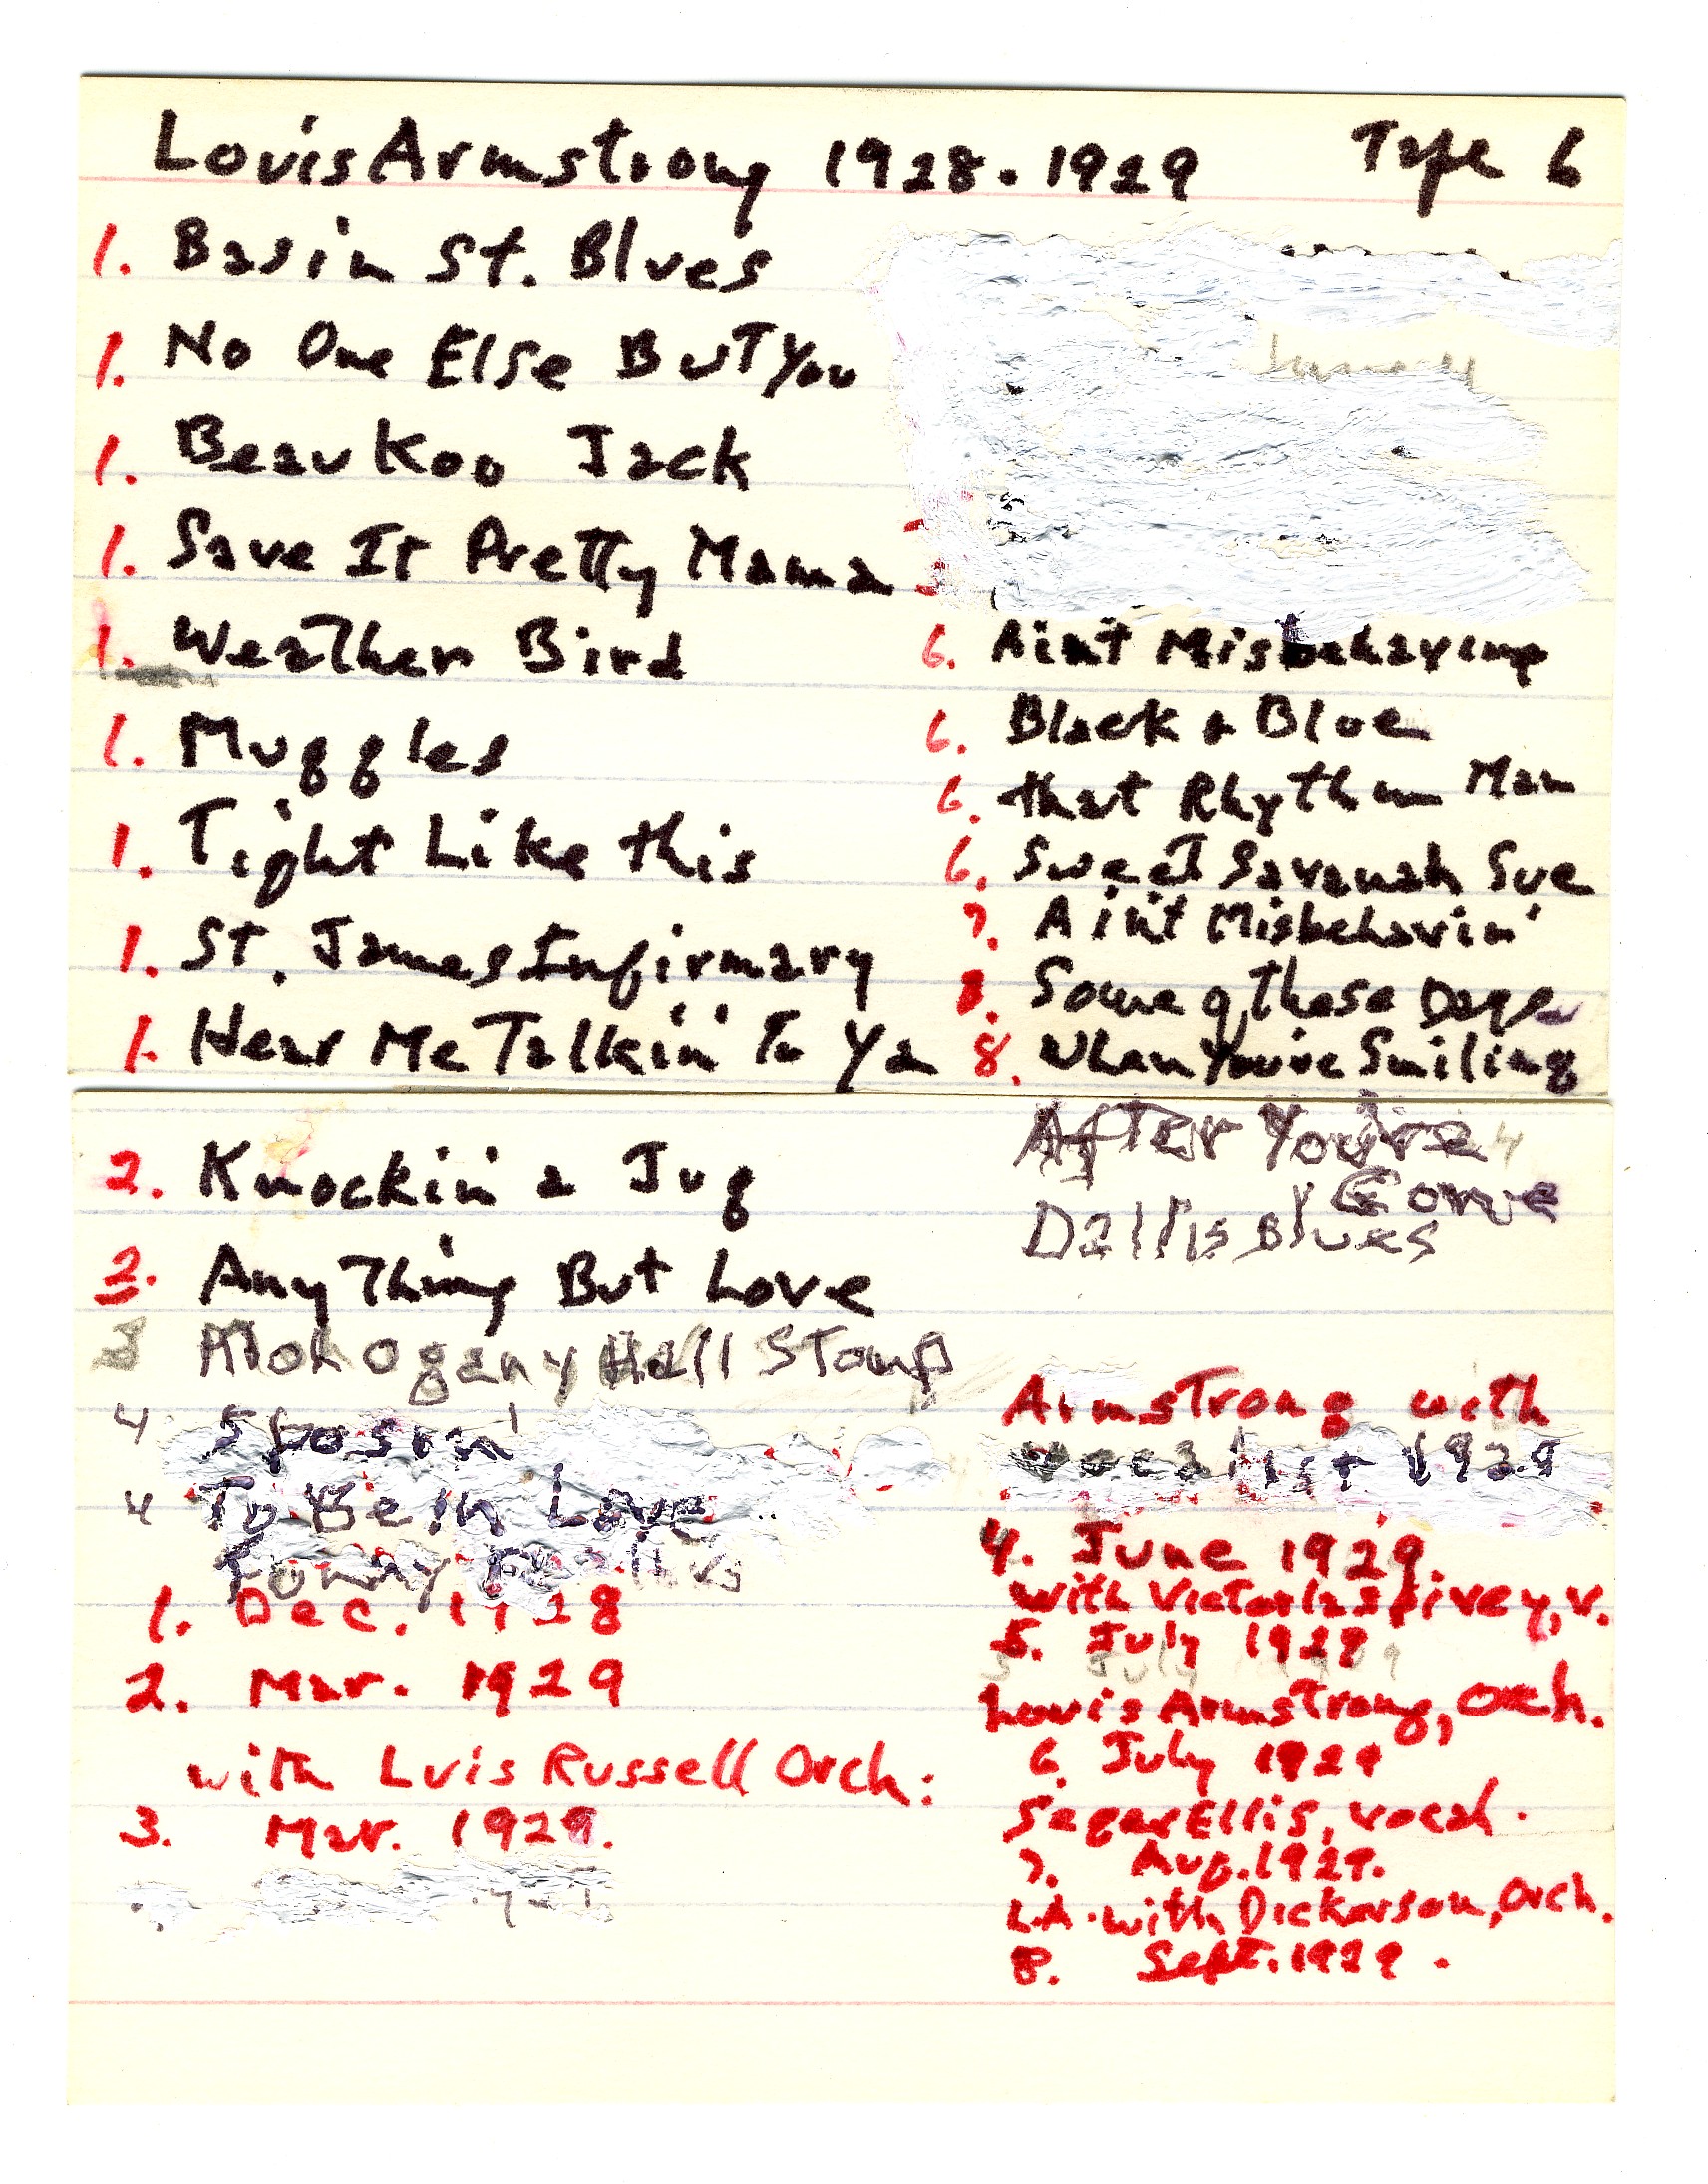 Louis Armstrong 1928-1929 Tape 6
1. Basin St. Blues
1. No One Else But You
1. Beau Koo Jack
1. Save It Pretty Mama
1. Weather Bird
1. Muggles
1. Tight Like this
1. St. James Infirmary
1. Hear Me Talkin' To Ya
6. Ain't Misbehaving
6. Black & Blue
6. that Rhythm Man
6. Sweet Savanah Sue
7. Ain't Misbehavin'
8. Some of these Days
8. When You're Smiling
2. Knockin' a Jug
2. Any Thing But Love
3 Mohogany Hall Stomp
4 Sposin'
4 To Be in Love
Funny
1. Dec. 1928
2. Mar. 1929
with Luis Russell Orch:
3. Mar. 1929.
After You're
Gone
Dallis Blues
Armstrong with
vocalist 1929
4. June 1929
with Victoria Spivey, v.
5. July 1929
Louis Armstrong, Orch.
6. July 1929
Seger Ellis, vocal.
7. Aug. 1929.
L.A. with Dickerson, Orch.
8. Sept. 1929.